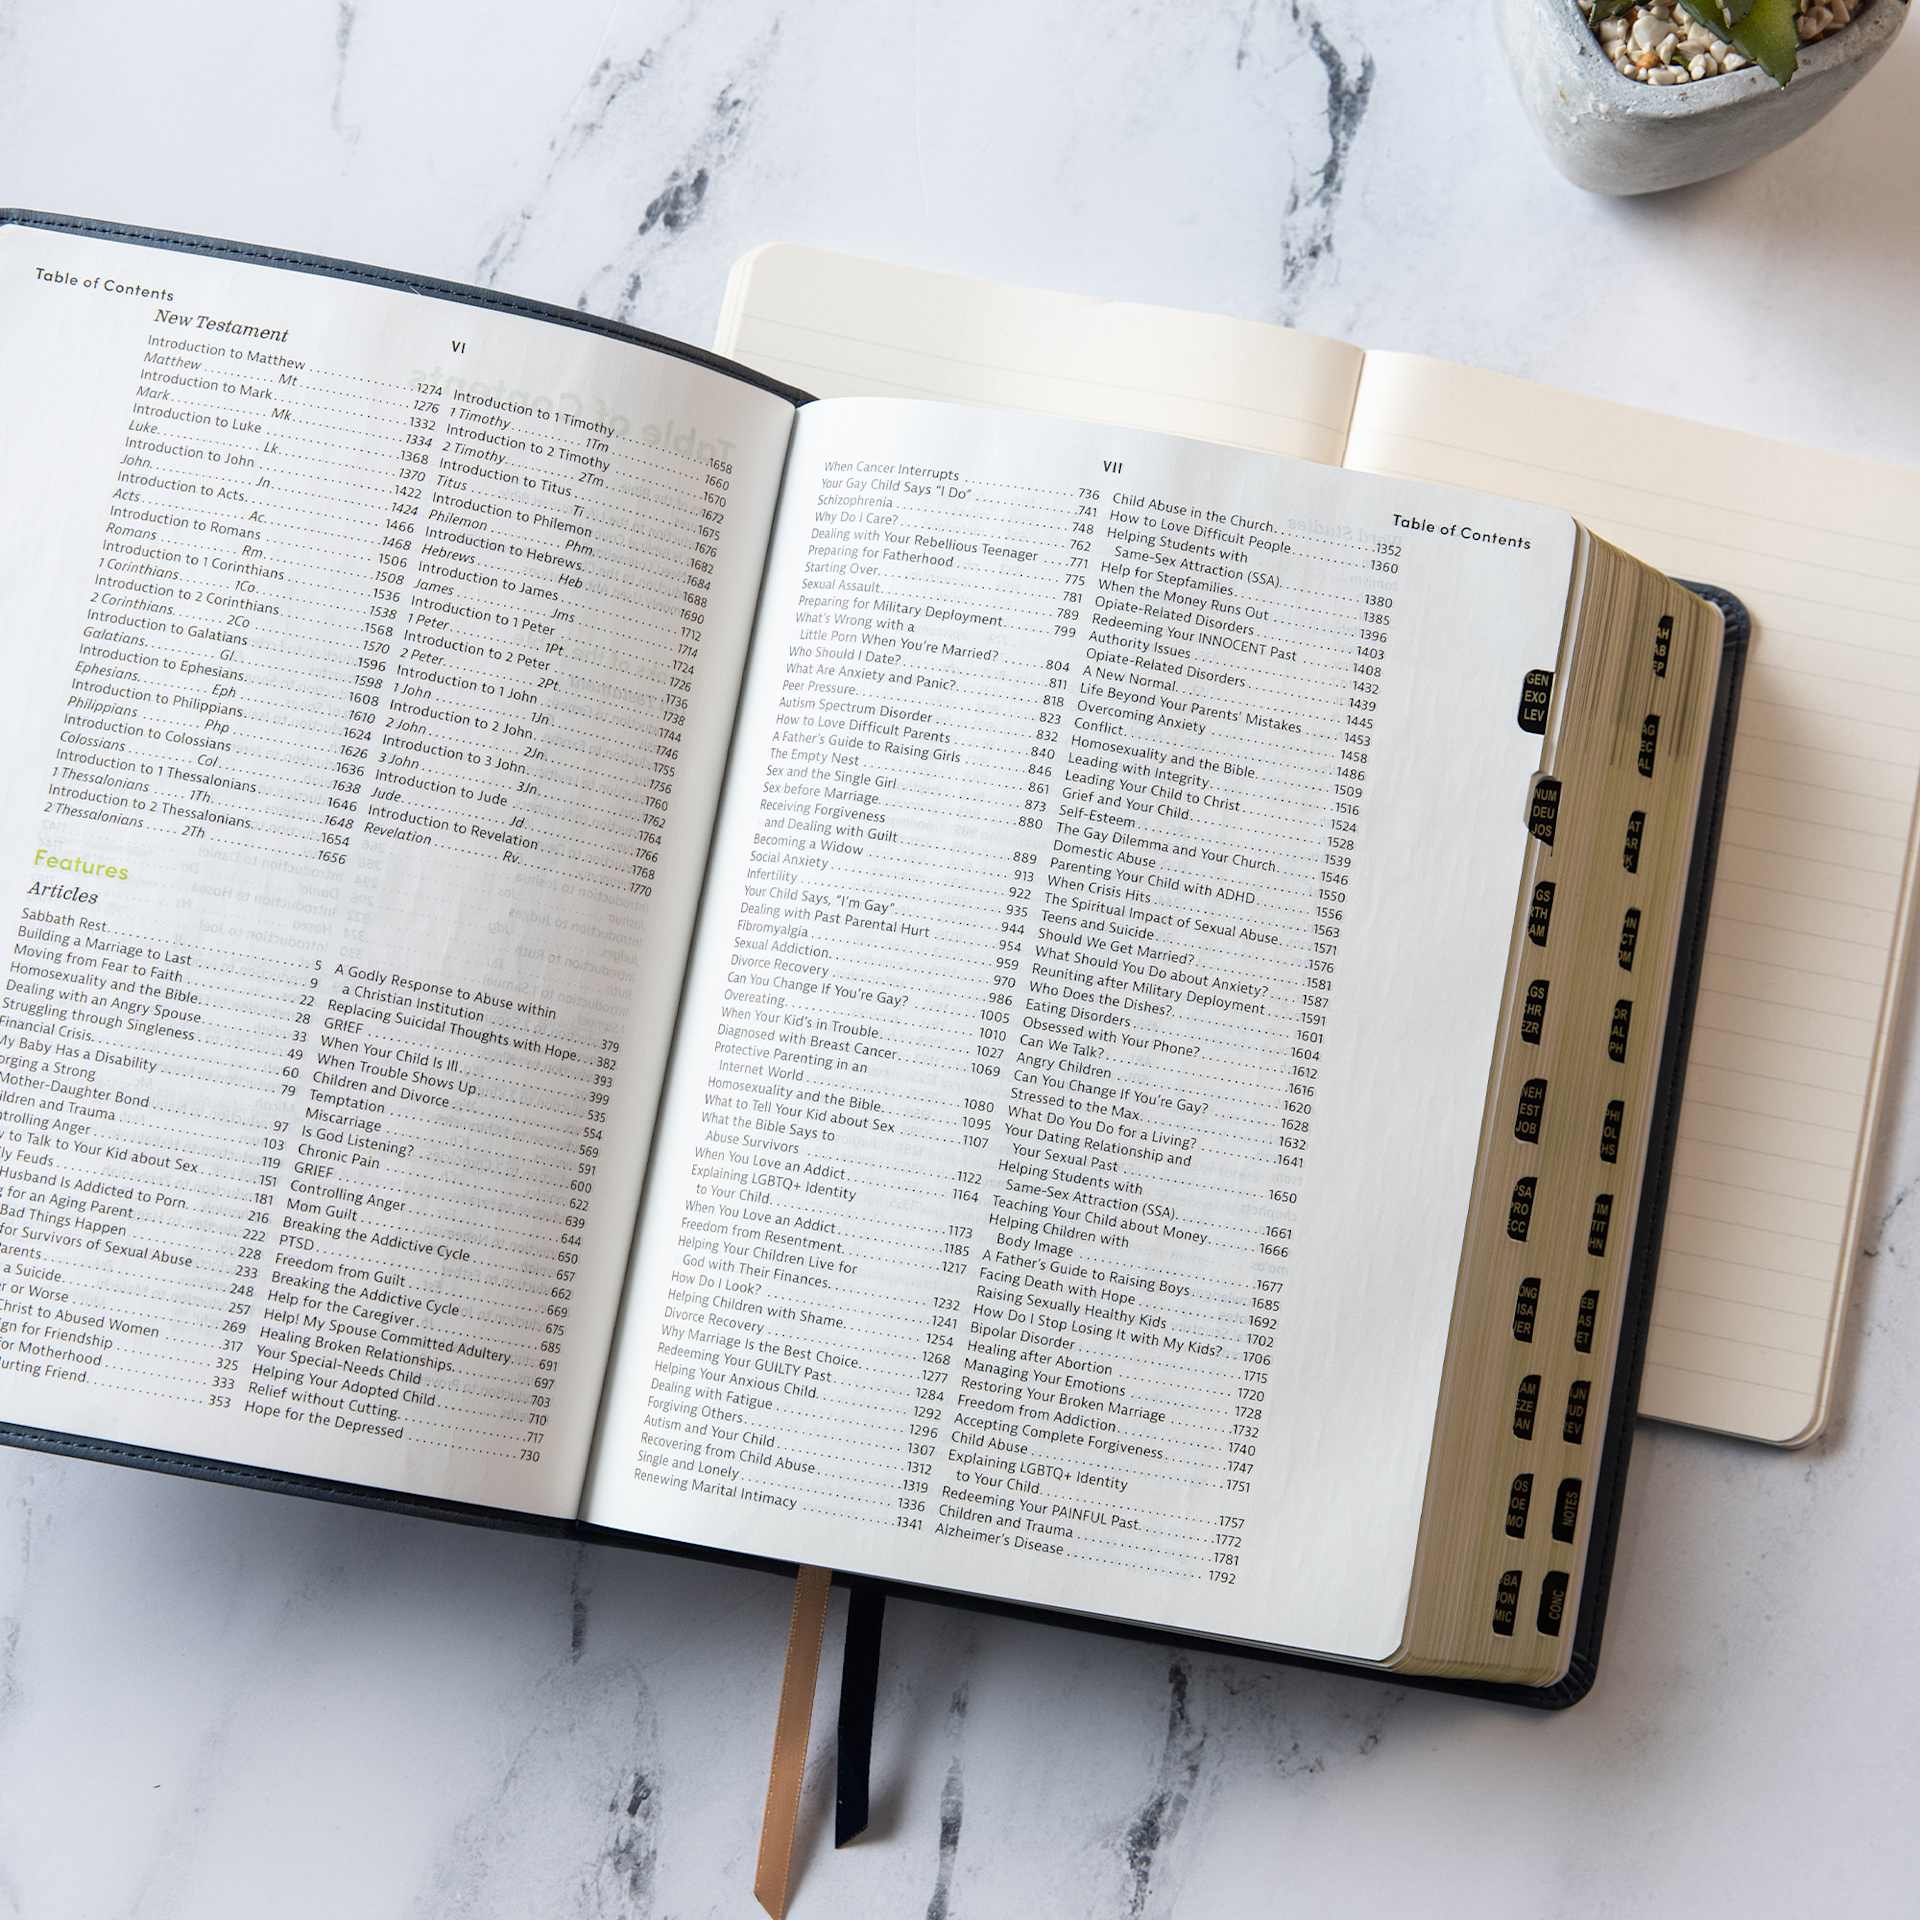 Table of Contents
VI
New Testament
Introduction to Matthew 1274
Matthew Mt 1276
Introduction to Mark 1332
Mark Mk 1334
Introduction to Luke 1368
Luke Lk 1370
Introduction to John 1422
John Jn 1424
Introduction to Acts 1466
Acts Ac 1468
Introduction to Romans 1506
Romans Rm 1508
Introduction to 1 Corinthians 1536
1 Corinthians 1Co 1538
Introduction to 2 Corinthians 1568
2 Corinthians 2Co 1570
Introduction to Galatians 1596
Galatians Gl 1598
Introduction to Ephesians 1608
Ephesians Eph 1610
Introduction to Philippians 1624
Philippians Php 1626
Introduction to Colossians 1636
Colossians Col 1638
Introduction to 1 Thessalonians 1646
1 Thessalonians 1Th 1648
Introduction to 2 Thessalonians 1654
2 Thessalonians 2Th 1656
Introduction to 1 Timothy 1658
1 Timothy 1Tm 1660
Introduction to 2 Timothy 1670
2 Timothy 2Tm 1672
Introduction to Titus 1675
Titus Ti 1676
Introduction to Philemon 1682
Philemon Phm 1684
Introduction to Hebrews 1688
Hebrews Heb 1690
Introduction to James 1712
James Jms 1714
Introduction to 1 Peter 1724
1 Peter 1Pt 1726
Introduction to 2 Peter 1736
2 Peter 2Pt 1738
Introduction to 1 John 1744
1 John 1Jn 1746
Introduction to 2 John 1755
2 John 2Jn 1756
Introduction to 3 John 1760
3 John 3Jn 1762
Introduction to Jude 1764
Jude Jd 1766
Introduction to Revelation 1768
Revelation Rv 1770
Features
Articles
Sabbath Rest 5
Building a Marriage to Last 9
Moving from Fear to Faith 22
Homosexuality and the Bible 28
Dealing with an Angry Spouse 33
Struggling through Singleness 49
Financial Crisis 60
My Baby Has a Disability 79
orging a Strong
Mother-Daughter Bond 97
ildren and Trauma 103
ntrolling Anger 119
w to Talk to Your Kid about Sex 151
ly Feuds 181
Husband Is Addicted to Porn 216
g for an Aging Parent 222
Bad Things Happen 228
for Survivors of Sexual Abuse 233
arents 248
a Suicide 257
er or Worse 269
Christ to Abused Women 317
ign for Friendship 325
for Motherhood 333
urting Friend 353
A Godly Response to Abuse within
a Christian Institution 379
Replacing Suicidal Thoughts with Hope 382
GRIEF 393
When Your Child Is Ill 399
When Trouble Shows Up 535
Children and Divorce 554
Temptation 569
Miscarriage 591
Is God Listening? 600
Chronic Pain 622
GRIEF 639
Controlling Anger 644
Mom Guilt 650
Breaking the Addictive Cycle 657
PTSD 662
Freedom from Guilt 669
Breaking the Addictive Cycle 675
Help for the Caregiver 685
Help! My Spouse Committed Adultery 691
Healing Broken Relationships 697
Your Special-Needs Child 703
Helping Your Adopted Child 710
Relief without Cutting 717
Hope for the Depressed 730
VII
Table of Contents
When Cancer Interrupts 736
Your Gay Child Says “I Do” 741
Schizophrenia 748
Why Do I Care? 762
Dealing with Your Rebellious Teenager 771
Preparing for Fatherhood 775
Starting Over 781
Sexual Assault 789
Preparing for Military Deployment 799
What's Wrong with a
Little Porn When You're Married? 804
Who Should I Date? 811
What Are Anxiety and Panic? 818
Peer Pressure 823
Autism Spectrum Disorder 832
How to Love Difficult Parents 840
A Father's Guide to Raising Girls 846
The Empty Nest 861
Sex and the Single Girl 873
Sex before Marriage 880
Receiving Forgiveness
and Dealing with Guilt 889
Becoming a Widow 913
Social Anxiety 922
Infertility 935
Your Child Says, “I'm Gay” 944
Dealing with Past Parental Hurt 954
Fibromyalgia 959
Sexual Addiction 970
Divorce Recovery 986
Can You Change If You're Gay? 1005
Overeating 1010
When Your Kid's in Trouble 1027
Diagnosed with Breast Cancer 1069
Protective Parenting in an
Internet World 1080
Homosexuality and the Bible 1095
What to Tell Your Kid about Sex 1107
What the Bible Says to
Abuse Survivors 1122
When You Love an Addict 1164
Explaining LGBTQ+ Identity
to Your Child 1173
When You Love an Addict 1185
Freedom from Resentment 1217
Helping Your Children Live for
God with Their Finances 1232
How Do I Look? 1241
Helping Children with Shame 1254
Divorce Recovery 1268
Why Marriage Is the Best Choice 1277
Redeeming Your GUILTY Past 1284
Helping Your Anxious Child 1292
Dealing with Fatigue 1296
Forgiving Others 1307
Autism and Your Child 1312
Recovering from Child Abuse 1319
Single and Lonely 1336
Renewing Marital Intimacy 1341
Child Abuse in the Church 1352
How to Love Difficult People 1360
Helping Students with
Same-Sex Attraction (SSA) 1380
Help for Stepfamilies 1385
When the Money Runs Out 1396
Opiate-Related Disorders 1403
Redeeming Your INNOCENT Past 1408
Authority Issues 1432
Opiate-Related Disorders 1439
A New Normal 1445
Life Beyond Your Parents' Mistakes 1453
Overcoming Anxiety 1458
Conflict 1486
Homosexuality and the Bible 1509
Leading with Integrity 1516
Leading Your Child to Christ 1524
Grief and Your Child 1528
Self-Esteem 1539
The Gay Dilemma and Your Church 1546
Domestic Abuse 1550
Parenting Your Child with ADHD 1556
When Crisis Hits 1563
The Spiritual Impact of Sexual Abuse 1571
Teens and Suicide 1576
Should We Get Married? 1581
What Should You Do about Anxiety? 1587
Reuniting after Military Deployment 1591
Who Does the Dishes? 1601
Eating Disorders 1604
Obsessed with Your Phone? 1612
Can We Talk? 1616
Angry Children 1620
Can You Change If You're Gay? 1628
Stressed to the Max 1632
What Do You Do for a Living? 1641
Your Dating Relationship and
Your Sexual Past 1650
Helping Students with
Same-Sex Attraction (SSA) 1661
Teaching Your Child about Money 1666
Helping Children with
Body Image 1677
A Father's Guide to Raising Boys 1685
Facing Death with Hope 1692
Raising Sexually Healthy Kids 1702
How Do I Stop Losing It with My Kids? 1706
Bipolar Disorder 1715
Healing after Abortion 1720
Managing Your Emotions 1728
Restoring Your Broken Marriage 1732
Freedom from Addiction 1740
Accepting Complete Forgiveness 1747
Child Abuse 1751
Explaining LGBTQ+ Identity
to Your Child 1757
Redeeming Your PAINFUL Past 1772
Children and Trauma 1781
Alzheimer's Disease 1792
GEN
EXO
LEV
NUM
DEU
JOS
NEH
EST
JOB
PSA
PRO
ECC
NOTES
CONC